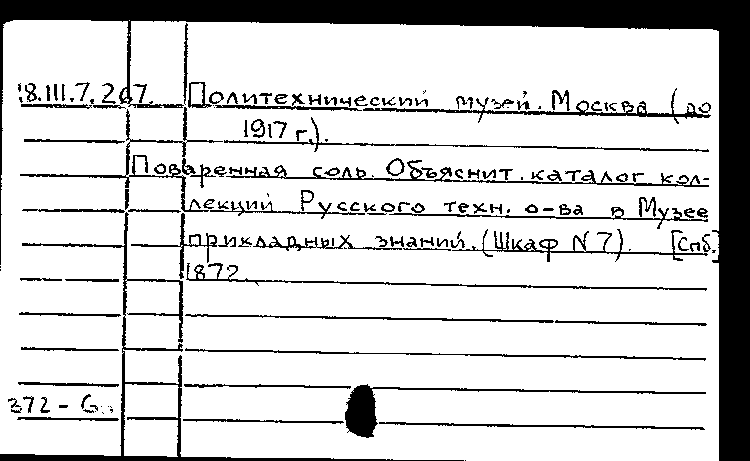 18.III.7.267. Политехнический музей. Москва (до
1917 г.).
Поваренная соль. Объяснит. каталог кол-
лекций Русского техн. о-ва в Музее
прикладных знаний. (Шкаф N 7). [Спб.]
1872.
372 - 6